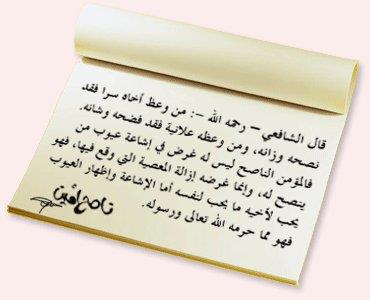 قال الشافعي – رحمه الله –: من وعظ أخاه سرا فقد
نصحه وزانه، ومن وعظه علانية فقد فضحه وشانه.
فالمؤمن الناصح ليس له غرض في إشاعة عيوب من
ينصح له، وإنما غرضه إزالة المعصية التي وقع فيها، فهو
يحب لأخيه ما يحب لنفسه أما الإشاعة وإظهار العيوب
فهو مما حرمه الله تعالى ورسوله.
ناصح أمين